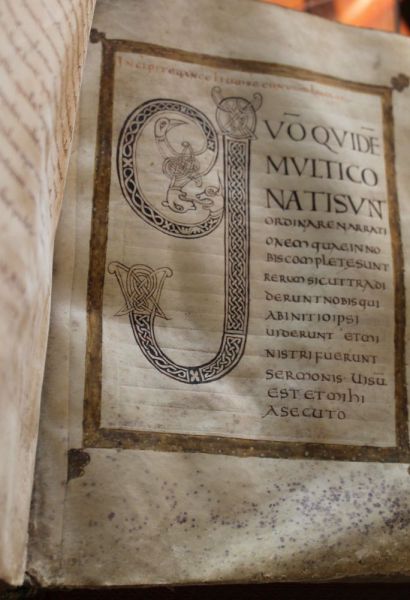 INCIPIT EUANGELIUM SECUNDUM
QVŌ QVIDĒ
MVLTI CO
NATI SVNT
ORDINARE NARRATI
ONEM QUAE IN NO
BIS COMPLETE SUNT
RERUM SICUT TRADI
DERUNT NOBIS QUI
AB INITIO IPSI
UIDERUNT ET MI
NISTRI FUERUNT
SERMONIS UISŪ
EST ET MIHI
ASECUTO